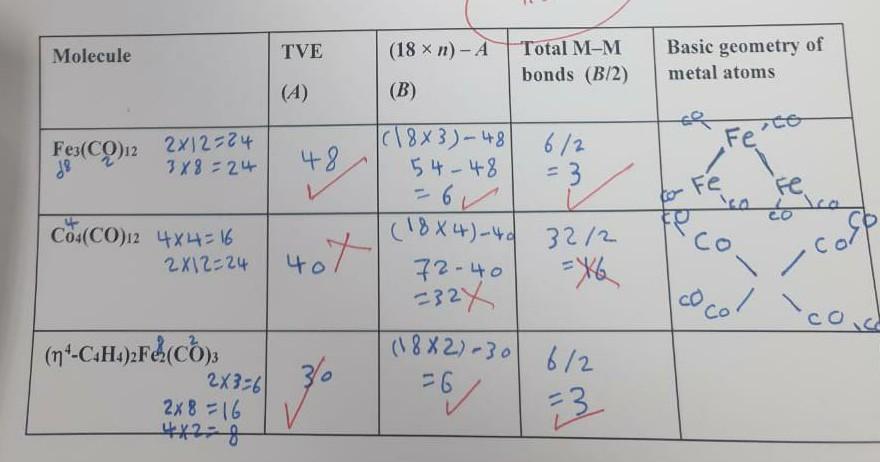 Molecule
TVE
(A)
(18 × n) – A
(B)
Total M–M
bonds (B/2)
Basic geometry of
metal atoms
Fe3(CO)12 2×12=24
d8 2 3×8=24
48
(18×3)-48
54-48
=6
6/2
=3
CO Fe CO
CO Fe Fe
CO CO CO
4
Co4(CO)12 4×4=16
2×12=24
40
(18×4)-40
72-40
=32
32/2
=16
CO Co Co CO
CO Co CO
8 2
(η4-C4H4)2Fe2(CO)3
2×3=6
2×8=16
4×2=8
30
(18×2)-30
=6
6/2
=3